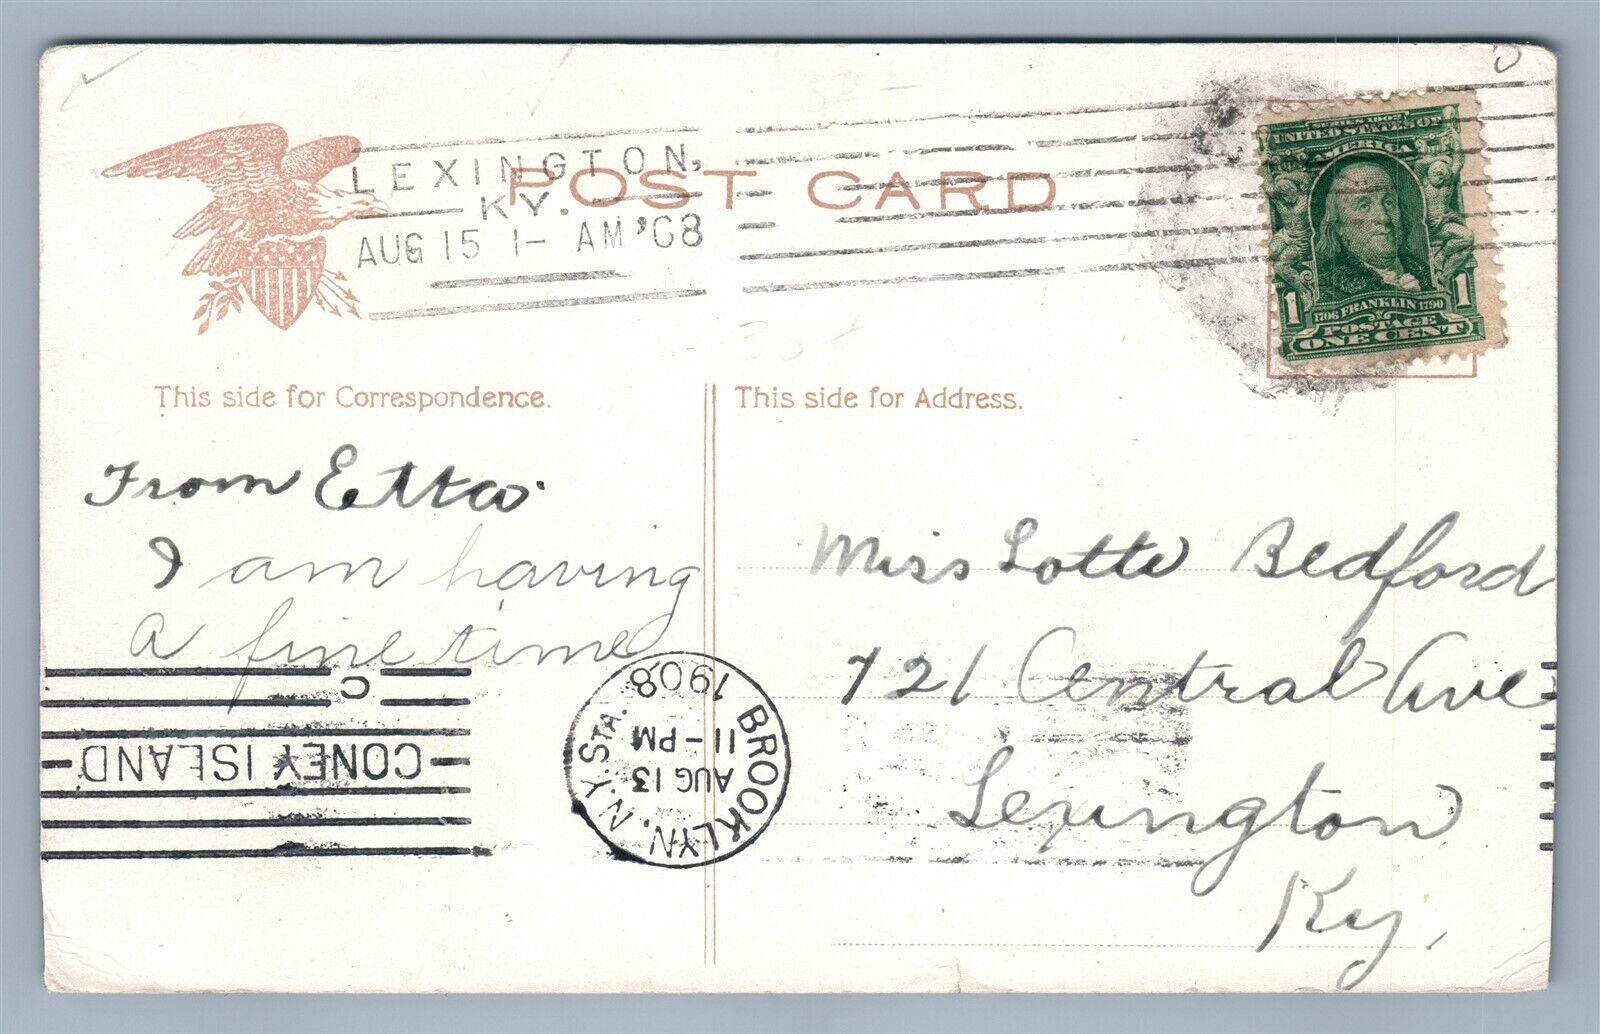 LEXINGTON,
KY.
AUG 15 1- AM '08
POST CARD
SERIES 1902
UNITED STATES OF
AMERICA
1 1706 FRANKLIN 1790 1
POSTAGE
ONE CENT
This side for Correspondence.
From Etta
I am having
a fine time
This side for Address.
Miss Lotte Bedford
721 Central Ave
Lexington
Ky.
BROOKLYN, N.Y. STA.
AUG 13
11-PM
1908
C
CONEY ISLAND